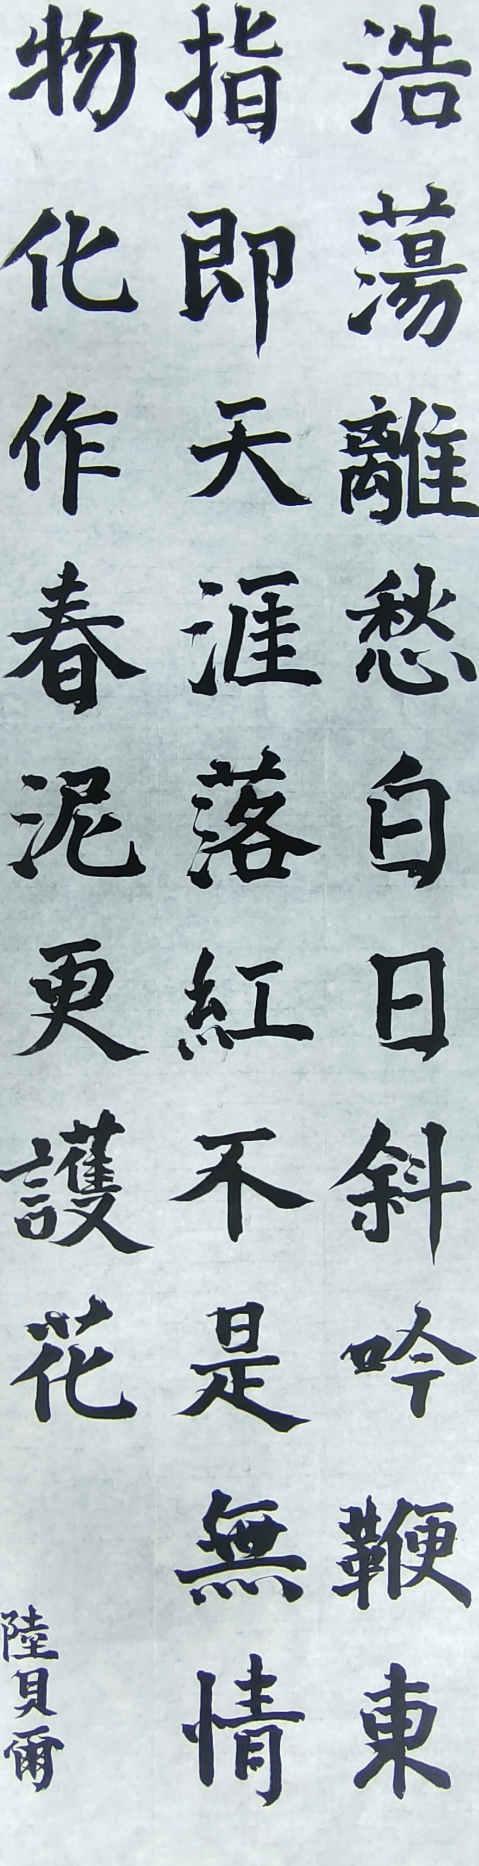 浩蕩離愁白日斜吟鞭東
指即天涯落紅不是無情
物化作春泥更護花
陸貝爾